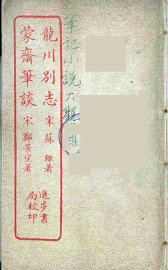 筆記小說大觀
龍川別志 宋 蘇轍著
蒙齋筆談 宋 鄭景望著
進步書局校印